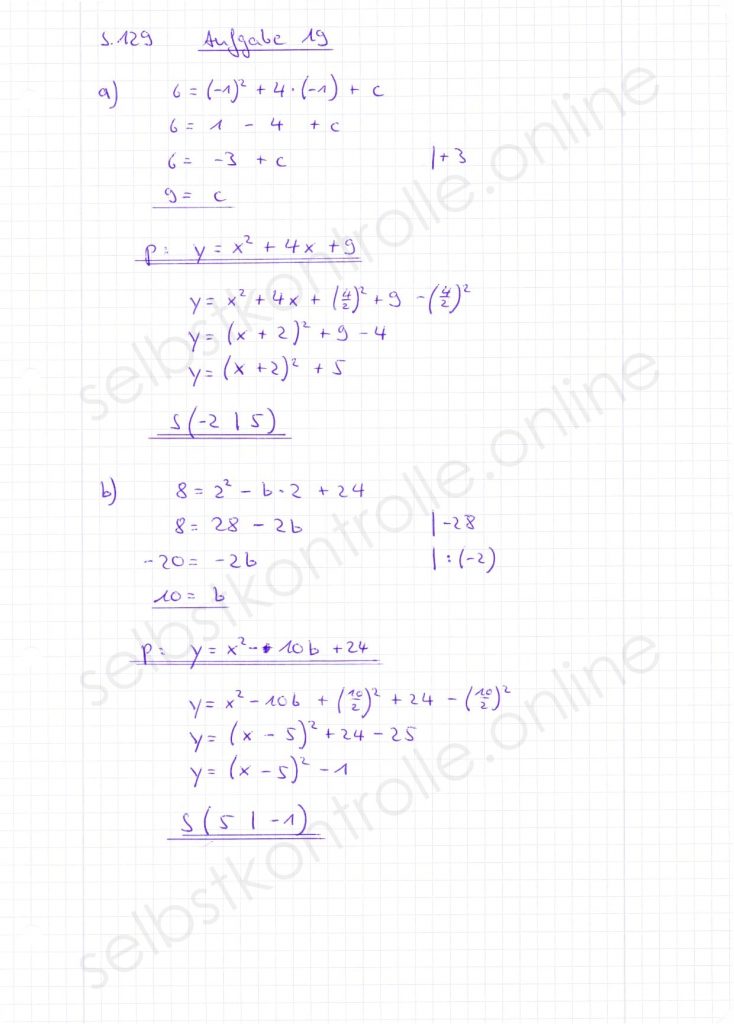 S.129 Aufgabe 19
a) 6 = (-1)² + 4 · (-1) + c
6 = 1 - 4 + c
6 = -3 + c |+3
9 = c
p: y = x² + 4x + 9
y = x² + 4x + (4/2)² + 9 - (4/2)²
y = (x + 2)² + 9 - 4
y = (x + 2)² + 5
S(-2 | 5)
b) 8 = 2² - b · 2 + 24
8 = 28 - 2b |-28
-20 = -2b |:(-2)
10 = b
p: y = x² - 10b + 24
y = x² - 10b + (10/2)² + 24 - (10/2)²
y = (x - 5)² + 24 - 25
y = (x - 5)² - 1
S(5 | -1)
selbstkontrolle.online
selbstkontrolle.online
selbstkontrolle.online